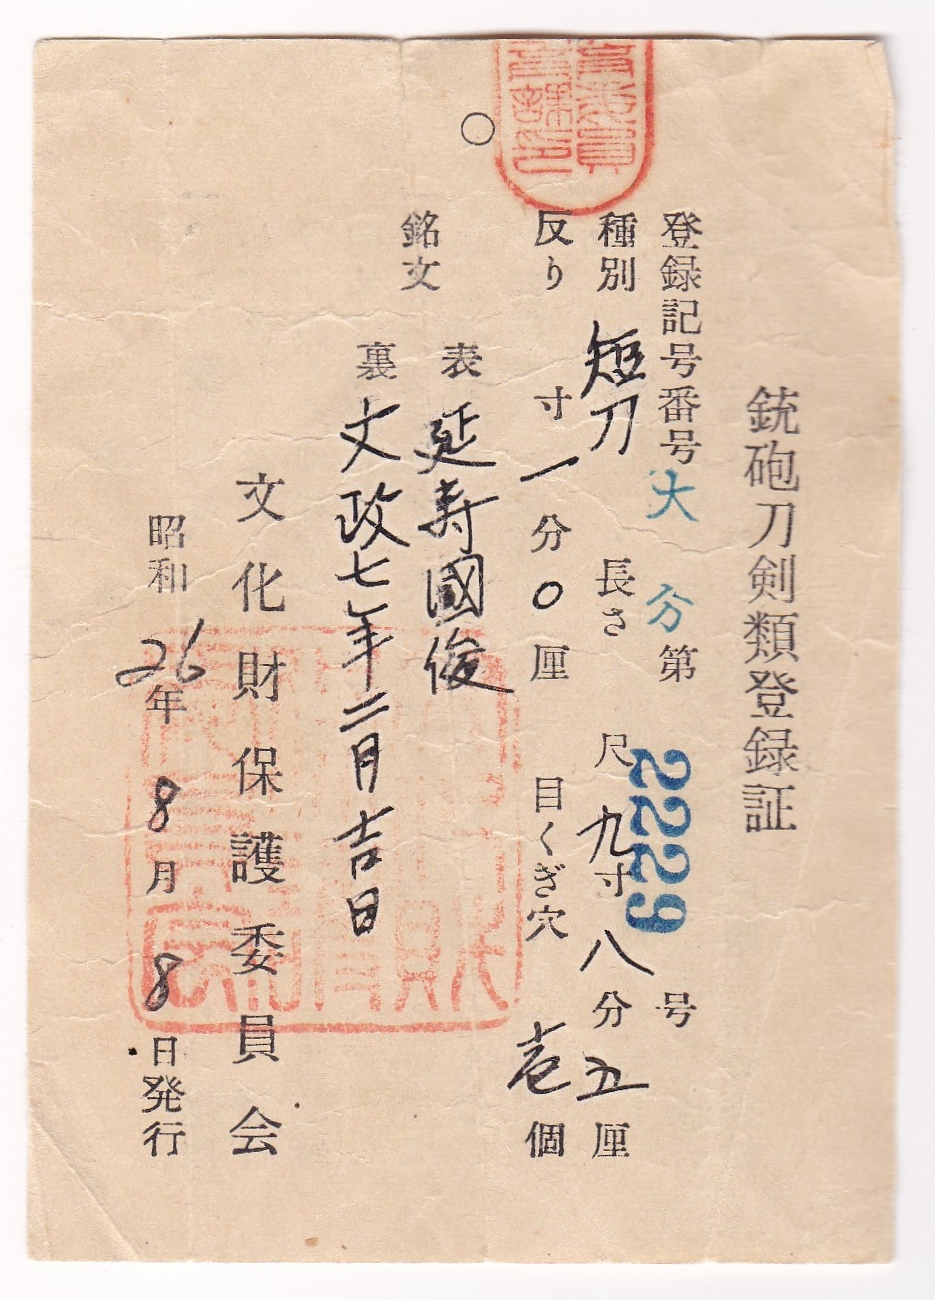 銃砲刀剣類登録証
登録記号番号 大分 第 2229 号
種別 短刀 長さ 尺 九寸 八分 五厘
反り 寸 一分 0厘 目くぎ穴 壱個
銘文
表 延寿國俊
裏 文政七年二月吉日
文化財保護委員会
昭和26年8月8日発行